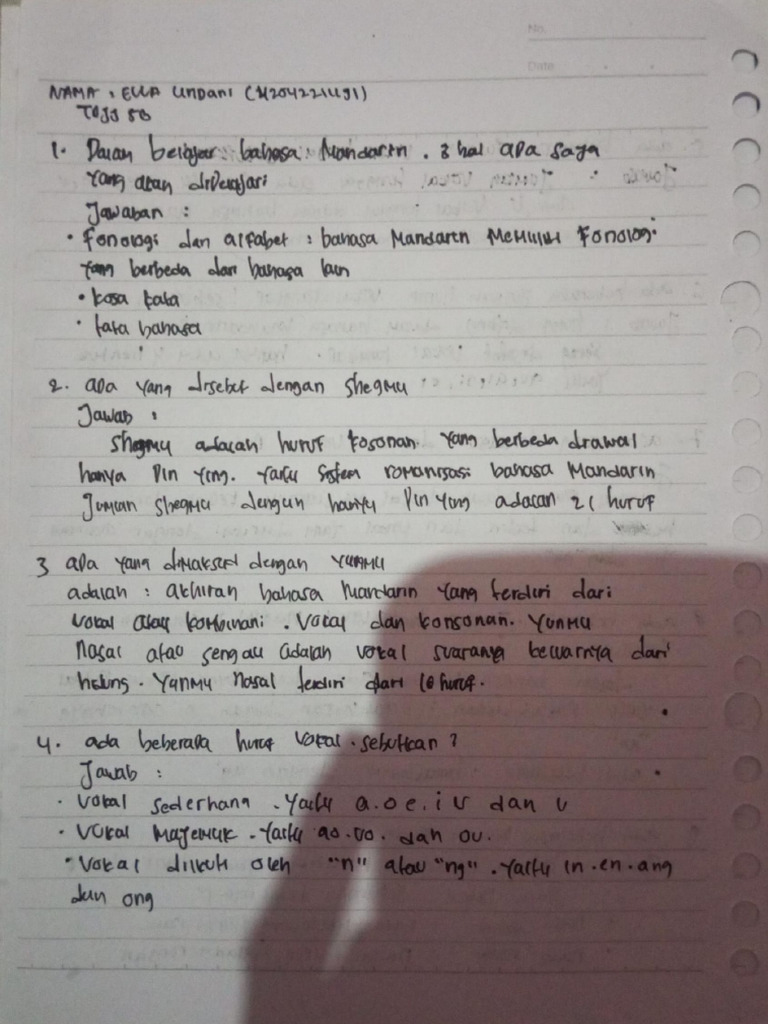 No.
Date
NAMA : ELLA UNDANI
1. Dalam belajar bahasa Mandarin . 3 hal apa saja
yang akan dipelajari
Jawaban :
• Fonologi dan alfabet : bahasa Mandarin Memiliki Fonologi
yang berbeda dari bahasa lain
• kosa kata
• tata bahasa
2. apa yang disebut dengan shegmu
Jawab :
shegmu adalah huruf kosonan yang berbeda drawal
hanya Pin Ying. yaitu sistem romanisasi bahasa Mandarin
Jumlah shegmu dengan hanyu Pin Yong adalah 21 huruf
3 apa yang dimaksud dengan YUNMU
adalah : akhiran bahasa Mandarin yang terdiri dari
vokal atau kombinani . vokal dan konsonan. YUNMU
Nasal atau sengau adalah vokal suaranya keluarnya dari
hidung. YANMU nasal terdiri dari 16 huruf.
4. ada beberapa huruf vokal . sebutkan ?
Jawab :
• vokal sederhana . yaitu a. o e. i u dan u
• vokal Majemuk . yaitu ao. uo. dan ou.
• vokal diikuti oleh "n" atau "ng" . yaitu in . en . ang
dan ong